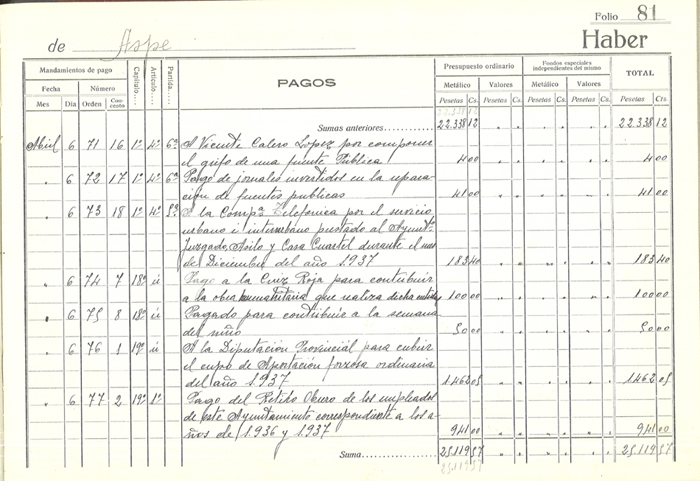 Folio 81
de Aspe Haber
Mandamientos de pago Capítulo.... Artículo.... Partida.... PAGOS Presupuesto ordinario Fondos especiales independientes del mismo TOTAL
Fecha Número Metálico Valores Metálico Valores
Mes Día Orden Concepto Pesetas Cs. Pesetas Cs. Pesetas Cs. Pesetas Cs. Pesetas Cts
22.338 12
Sumas anteriores 22.338 12 " " " " " " 22.338 12
Abril 6 71 16 1º 4º 6º A Vicente Calero López por componer
el grifo de una fuente Publica 4 00 " " " " " " 4 00
" 6 72 17 1º 4º 6º Pago de jornales invertidos en la repara-
ción de fuentes publicas 41 00 " " " " " " 41 00
" 6 73 18 1º 4º 5º A la Compª Telefonica por el servicio
urbano e interurbano prestado al Ayuntº
Juzgado, Asilo y Casa Cuartel durante el mes
de Diciembre del año 1937 183 40 " " " " " " 183 40
" 6 74 7 18º ú Pago a la Cruz Roja para contribuir
a la obra humanitaria que realiza dicha entidad 100 00 " " " " " " 100 00
" 6 75 8 18º ú Pagado para contribuir a la semana
del niño 50 00 " " " " " " 50 00
" 6 76 1 19º ú A la Diputación Provincial para cubrir
el cupo de Aportación forzosa ordinaria
del año 1937 1.462 05 " " " " " " 1.462 05
" 6 77 2 19º 1º Pago del Retiro Obrero de los empleados
de este Ayuntamiento correspondiente a los a-
ños de 1936 y 1937 941 00 " " " " " " 941 00
Suma 25.119 57 " " " " " " 25.119 57
25.119 57